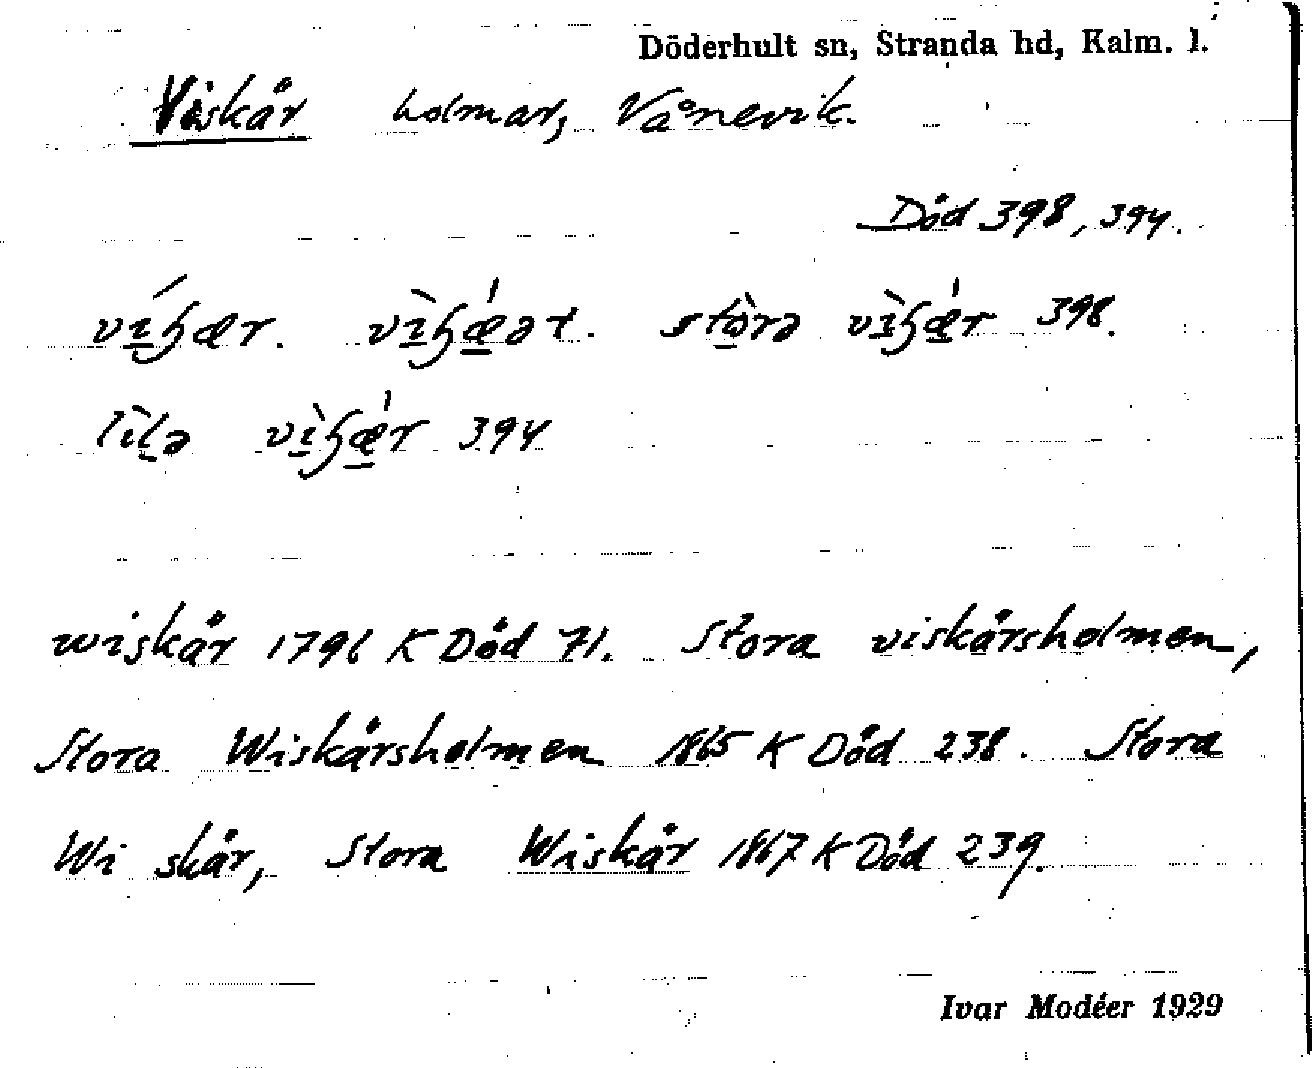 Döderhult sn, Stranda hd, Kalm. l.
Viskär holmar, Vånevik.
Död 398, 394.
víɧær. vìɧǽət. stòrə vìɧǽr 398.
lìlə vìɧǽr 394
wiskär 1796 K Död 71. Stora viskärsholmen,
Stora Wiskärsholmen 1865 K Död 238. Stora
Wi skär, Stora Wiskär 1867 K Död 239.
Ivar Modéer 1929